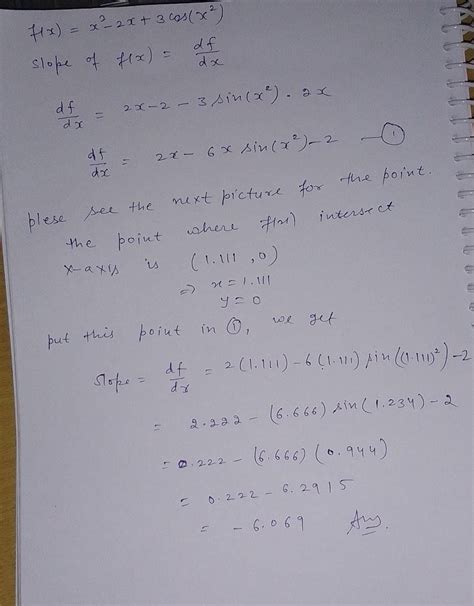 f(x) = x² - 2x + 3 cos(x²)
slope of f(x) = df/dx
df/dx = 2x - 2 - 3 sin(x²) · 2x
df/dx = 2x - 6x sin(x²) - 2 — ①
plese see the next picture for the point.
the point where f(x) intersect
x-axis is (1.111, 0)
⇒ x = 1.111
y = 0
put this point in ①, we get
slope = df/dx = 2(1.111) - 6(1.111) sin((1.111)²) - 2
= 2.222 - (6.666) sin(1.234) - 2
= 0.222 - (6.666) (0.944)
= 0.222 - 6.2915
= - 6.069 Ans.